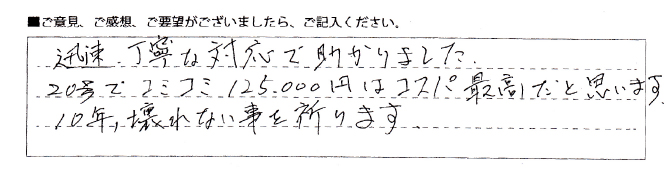 ■ご意見、ご感想、ご要望がございましたら、ご記入ください。
迅速、丁寧な対応で助かりました.
20号でコミコミ125.000円はコスパ最高だと思います.
10年,壊れない事を祈ります.